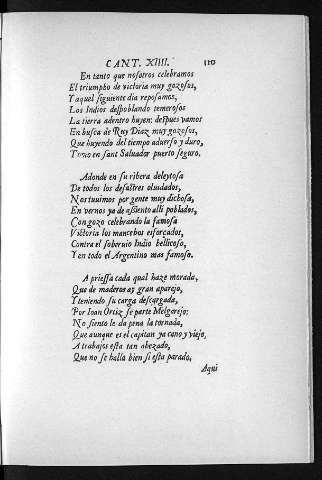 CANT. XIIII. 110
En tanto que nosotros celebramos
El triumpho de victoria muy gozosos,
Y aquel siguiente dia reposamos,
Los Indios despoblando temerosos
La tierra adentro huyen: despues vamos
En busca de Ruy Diaz muy gozosos,
Que huyendo del tiempo aduerso y duro,
Tomo en sant Saluador puerto seguro.
Adonde en su ribera deleytosa
De todos los desastres oluidados,
Nos tuuimos por gente muy dichosa,
En vernos ya de assiento alli poblados,
Con gozo celebrando la famosa
Victoria los mancebos esforçados,
Contra el soberuio Indio bellicoso,
Y en todo el Argentino mas famoso.
A priessa cada qual haze morada,
Que de maderos ay gran aparejo,
Y teniendo su carga descargada,
Por Ioan Ortiz se parte Melgarejo:
No siente le da pena la tornada,
Que aunque es el capitan ya cano y viejo,
A trabajos esta tan abezado,
Que no se halla bien si esta parado,
Aqui